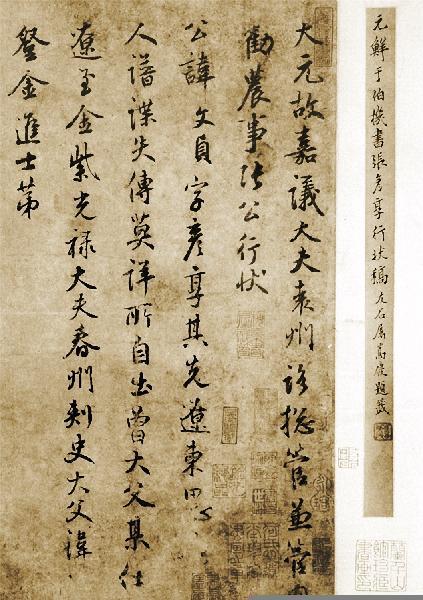 元鮮于伯機書張彥享行狀稿 題籤
大元故嘉議大夫袁州路總管兼管內
勸農事張公行狀
公諱文貞字彥享其先遼東
人譜諜失傳莫詳所自出曾大父某仕
遼至金紫光祿大夫春州刺史大父諱
登金進士第